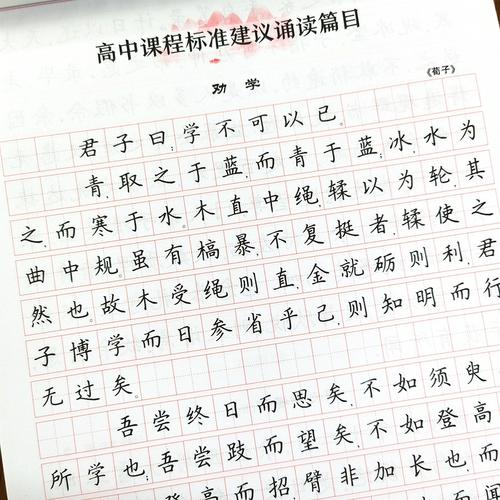 高中课程标准建议诵读篇目
劝学
《荀子》
君子曰:学不可以已。
青,取之于蓝,而青于蓝;冰,水为
之,而寒于水。木直中绳,輮以为轮,其
曲中规。虽有槁暴,不复挺者,輮使之
然也。故木受绳则直,金就砺则利,君
子博学而日参省乎己,则知明而行
无过矣。
吾尝终日而思矣,不如须臾
所学也;吾尝跂而望矣,不如登高
高而招,臂非加长也,而